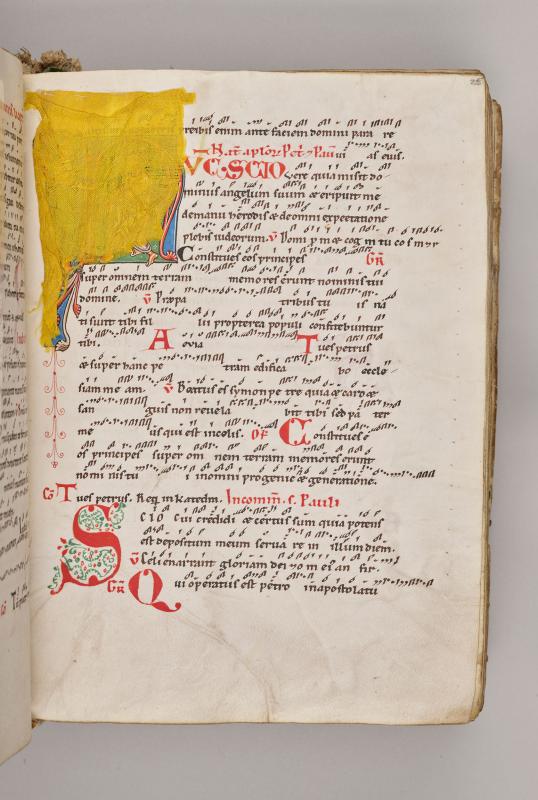 reibis enim ante faciem domini para re
vias eius.
N SCIO vere quia misit do
minus angelum suum & eripuit me
de manu herodis & de omni expectatione
plebis iudeorum. V Domi p m & cog
Constitues eos principes GR
super omnem terram memores erunt nominis tui
domine. V Pro pa tribus tu is na
ti sunt tibi fil lii propterea populi confitebuntur
tibi. A evia Tu es petrus
& super hanc pe tram edifica bo eccle
siam me am. V Beatus es symon pe tre quia & caro &
san guis non revela bit tibi sed pa ter
me us qui est in celis. Of Constitues e
os principes super om nem terram memores erunt
no mi nis tu i in omni progenie & generatione.
Co Tu es petrus. Req in katedra. In comm. s. Pauli
SCIO cui credidi & certus sum quia potens
est depositum meum serva re in illum diem.
V Celi enarrant gloriam dei
GR Qui operatus est petro in apostolatu